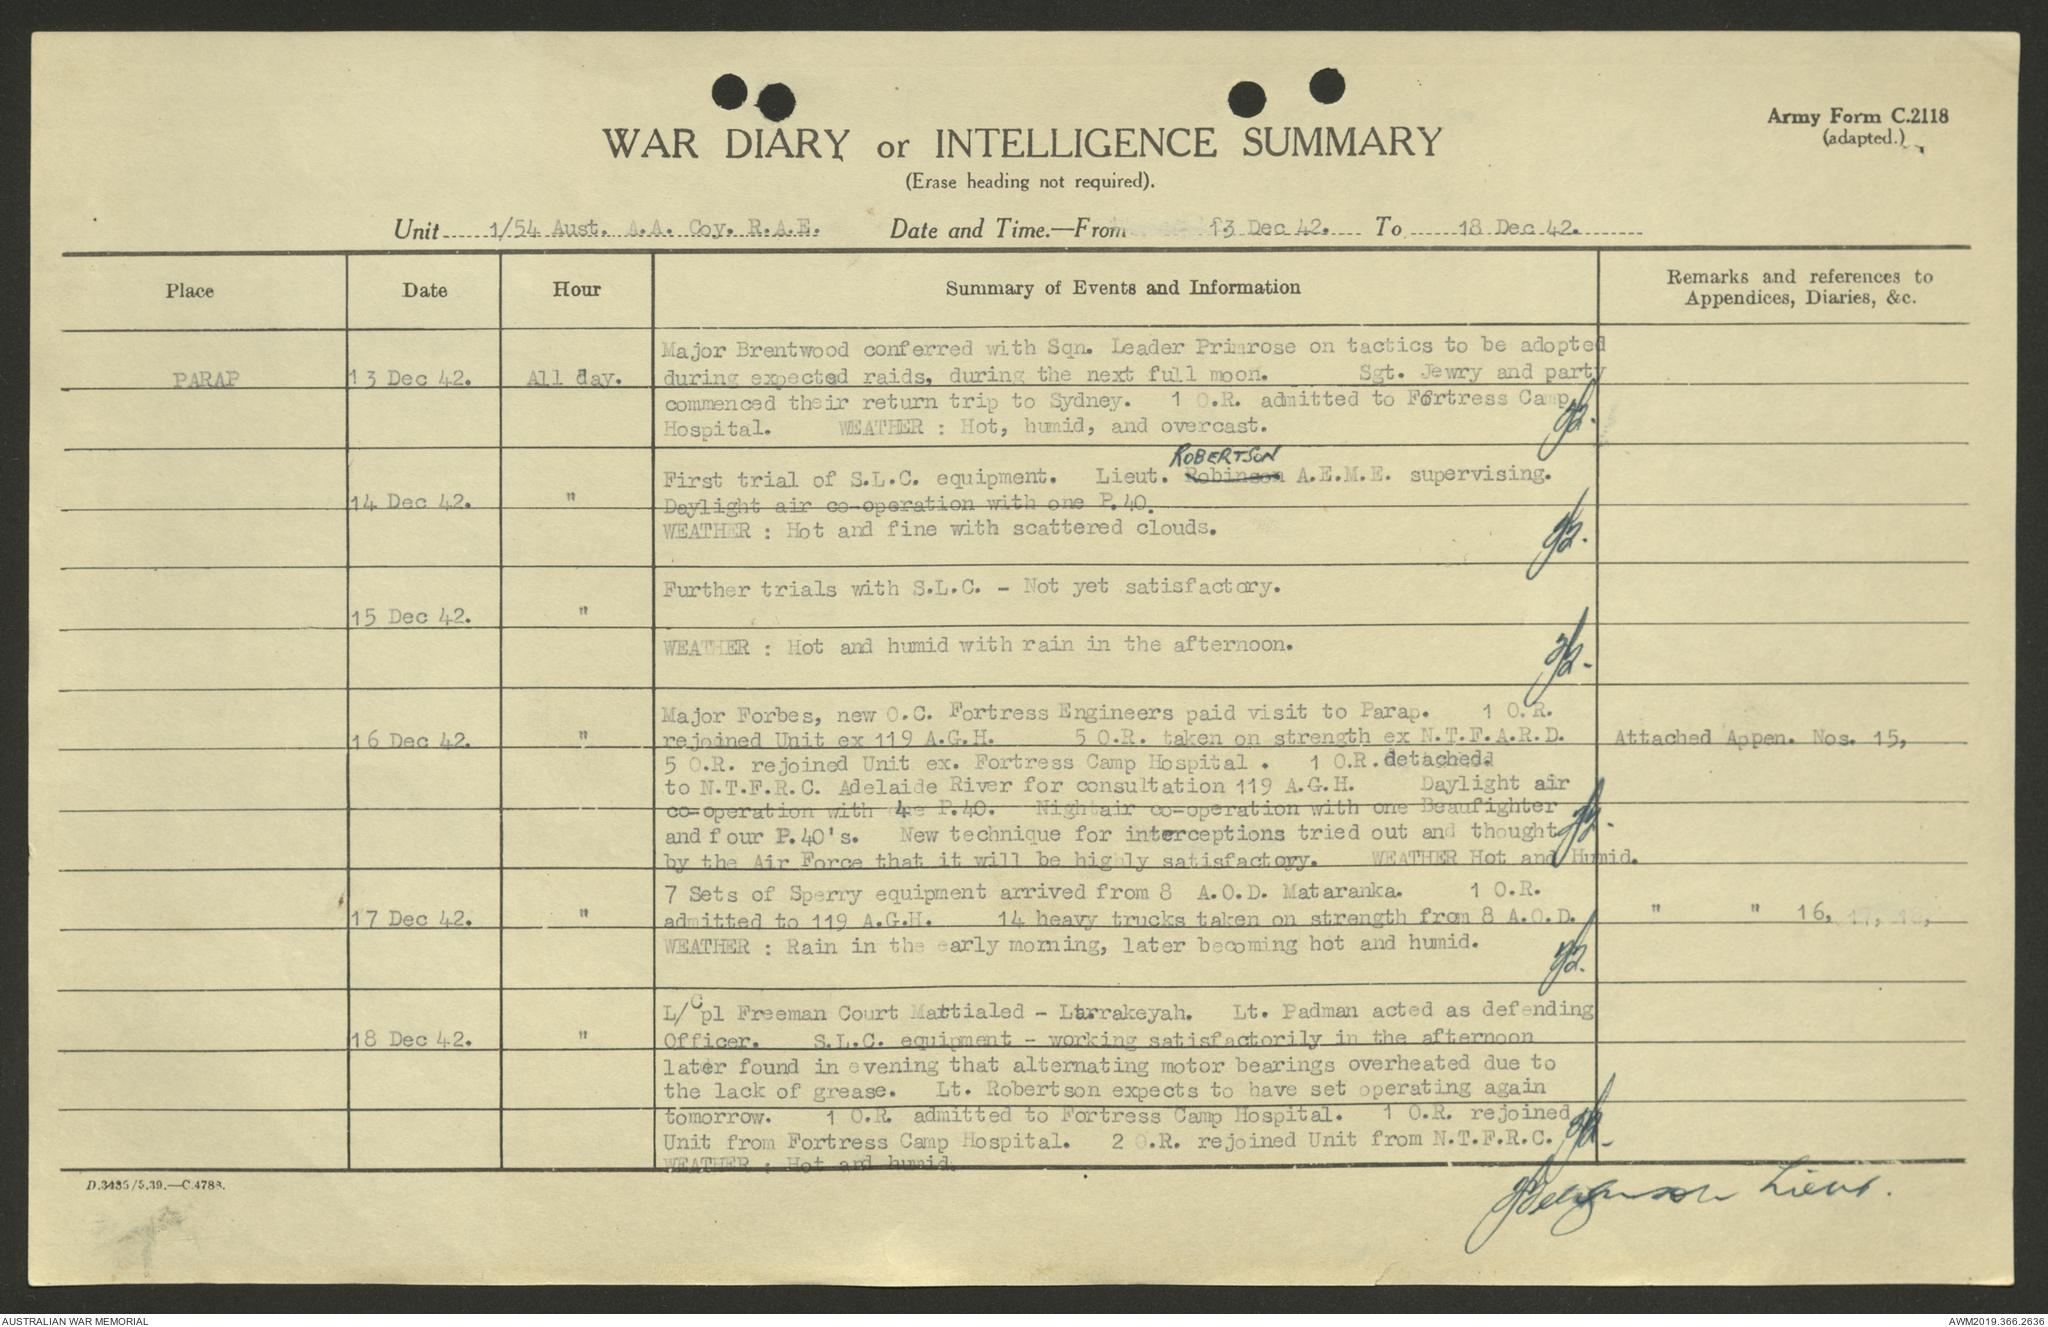 Army Form C.2118
(adapted.)
WAR DIARY or INTELLIGENCE SUMMARY
(Erase heading not required).
Unit 1/54 Aust. A.A. Coy. R.A.E. Date and Time.—From 13 Dec 42. To 18 Dec 42.
Place Date Hour Summary of Events and Information Remarks and references to
Appendices, Diaries, &c.
Major Brentwood conferred with Sqn. Leader Primrose on tactics to be adopted
PARAP 13 Dec 42. All day. during expected raids, during the next full moon. Sgt. Jewry and party
commenced their return trip to Sydney. 1 O.R. admitted to Fortress Camp
Hospital. WEATHER : Hot, humid, and overcast.
ROBERTSON
First trial of S.L.C. equipment. Lieut. Robinson A.E.M.E. supervising.
14 Dec 42. " Daylight air co-operation with one P.40.
WEATHER : Hot and fine with scattered clouds.
Further trials with S.L.C. - Not yet satisfactory.
15 Dec 42. "
WEATHER : Hot and humid with rain in the afternoon.
Major Forbes, new O.C. Fortress Engineers paid visit to Parap. 1 O.R.
16 Dec 42. " rejoined Unit ex 119 A.G.H. 5 O.R. taken on strength ex N.T.F.A.R.D. Attached Appen. Nos. 15,
5 O.R. rejoined Unit ex. Fortress Camp Hospital . 1 O.R. detached
to N.T.F.R.C. Adelaide River for consultation 119 A.G.H. Daylight air
co-operation with 4 P.40. Nightair co-operation with one Beaufighter
and four P.40's. New technique for interceptions tried out and thought
by the Air Force that it will be highly satisfactory. WEATHER Hot and Humid.
7 Sets of Sperry equipment arrived from 8 A.O.D. Mataranka. 1 O.R.
17 Dec 42. " admitted to 119 A.G.H. 14 heavy trucks taken on strength from 8 A.O.D. " " 16, 17, 18,
WEATHER : Rain in the early morning, later becoming hot and humid.
L/Cpl Freeman Court Martialed - Larrakeyah. Lt. Padman acted as defending
18 Dec 42. " Officer. S.L.C. equipment - working satisfactorily in the afternoon
later found in evening that alternating motor bearings overheated due to
the lack of grease. Lt. Robertson expects to have set operating again
tomorrow. 1 O.R. admitted to Fortress Camp Hospital. 1 O.R. rejoined
Unit from Fortress Camp Hospital. 2 O.R. rejoined Unit from N.T.F.R.C.
WEATHER : Hot and humid.
D.3435/5.39.—C.4788.
Lieut.
AUSTRALIAN WAR MEMORIAL
AWM2019.366.2636